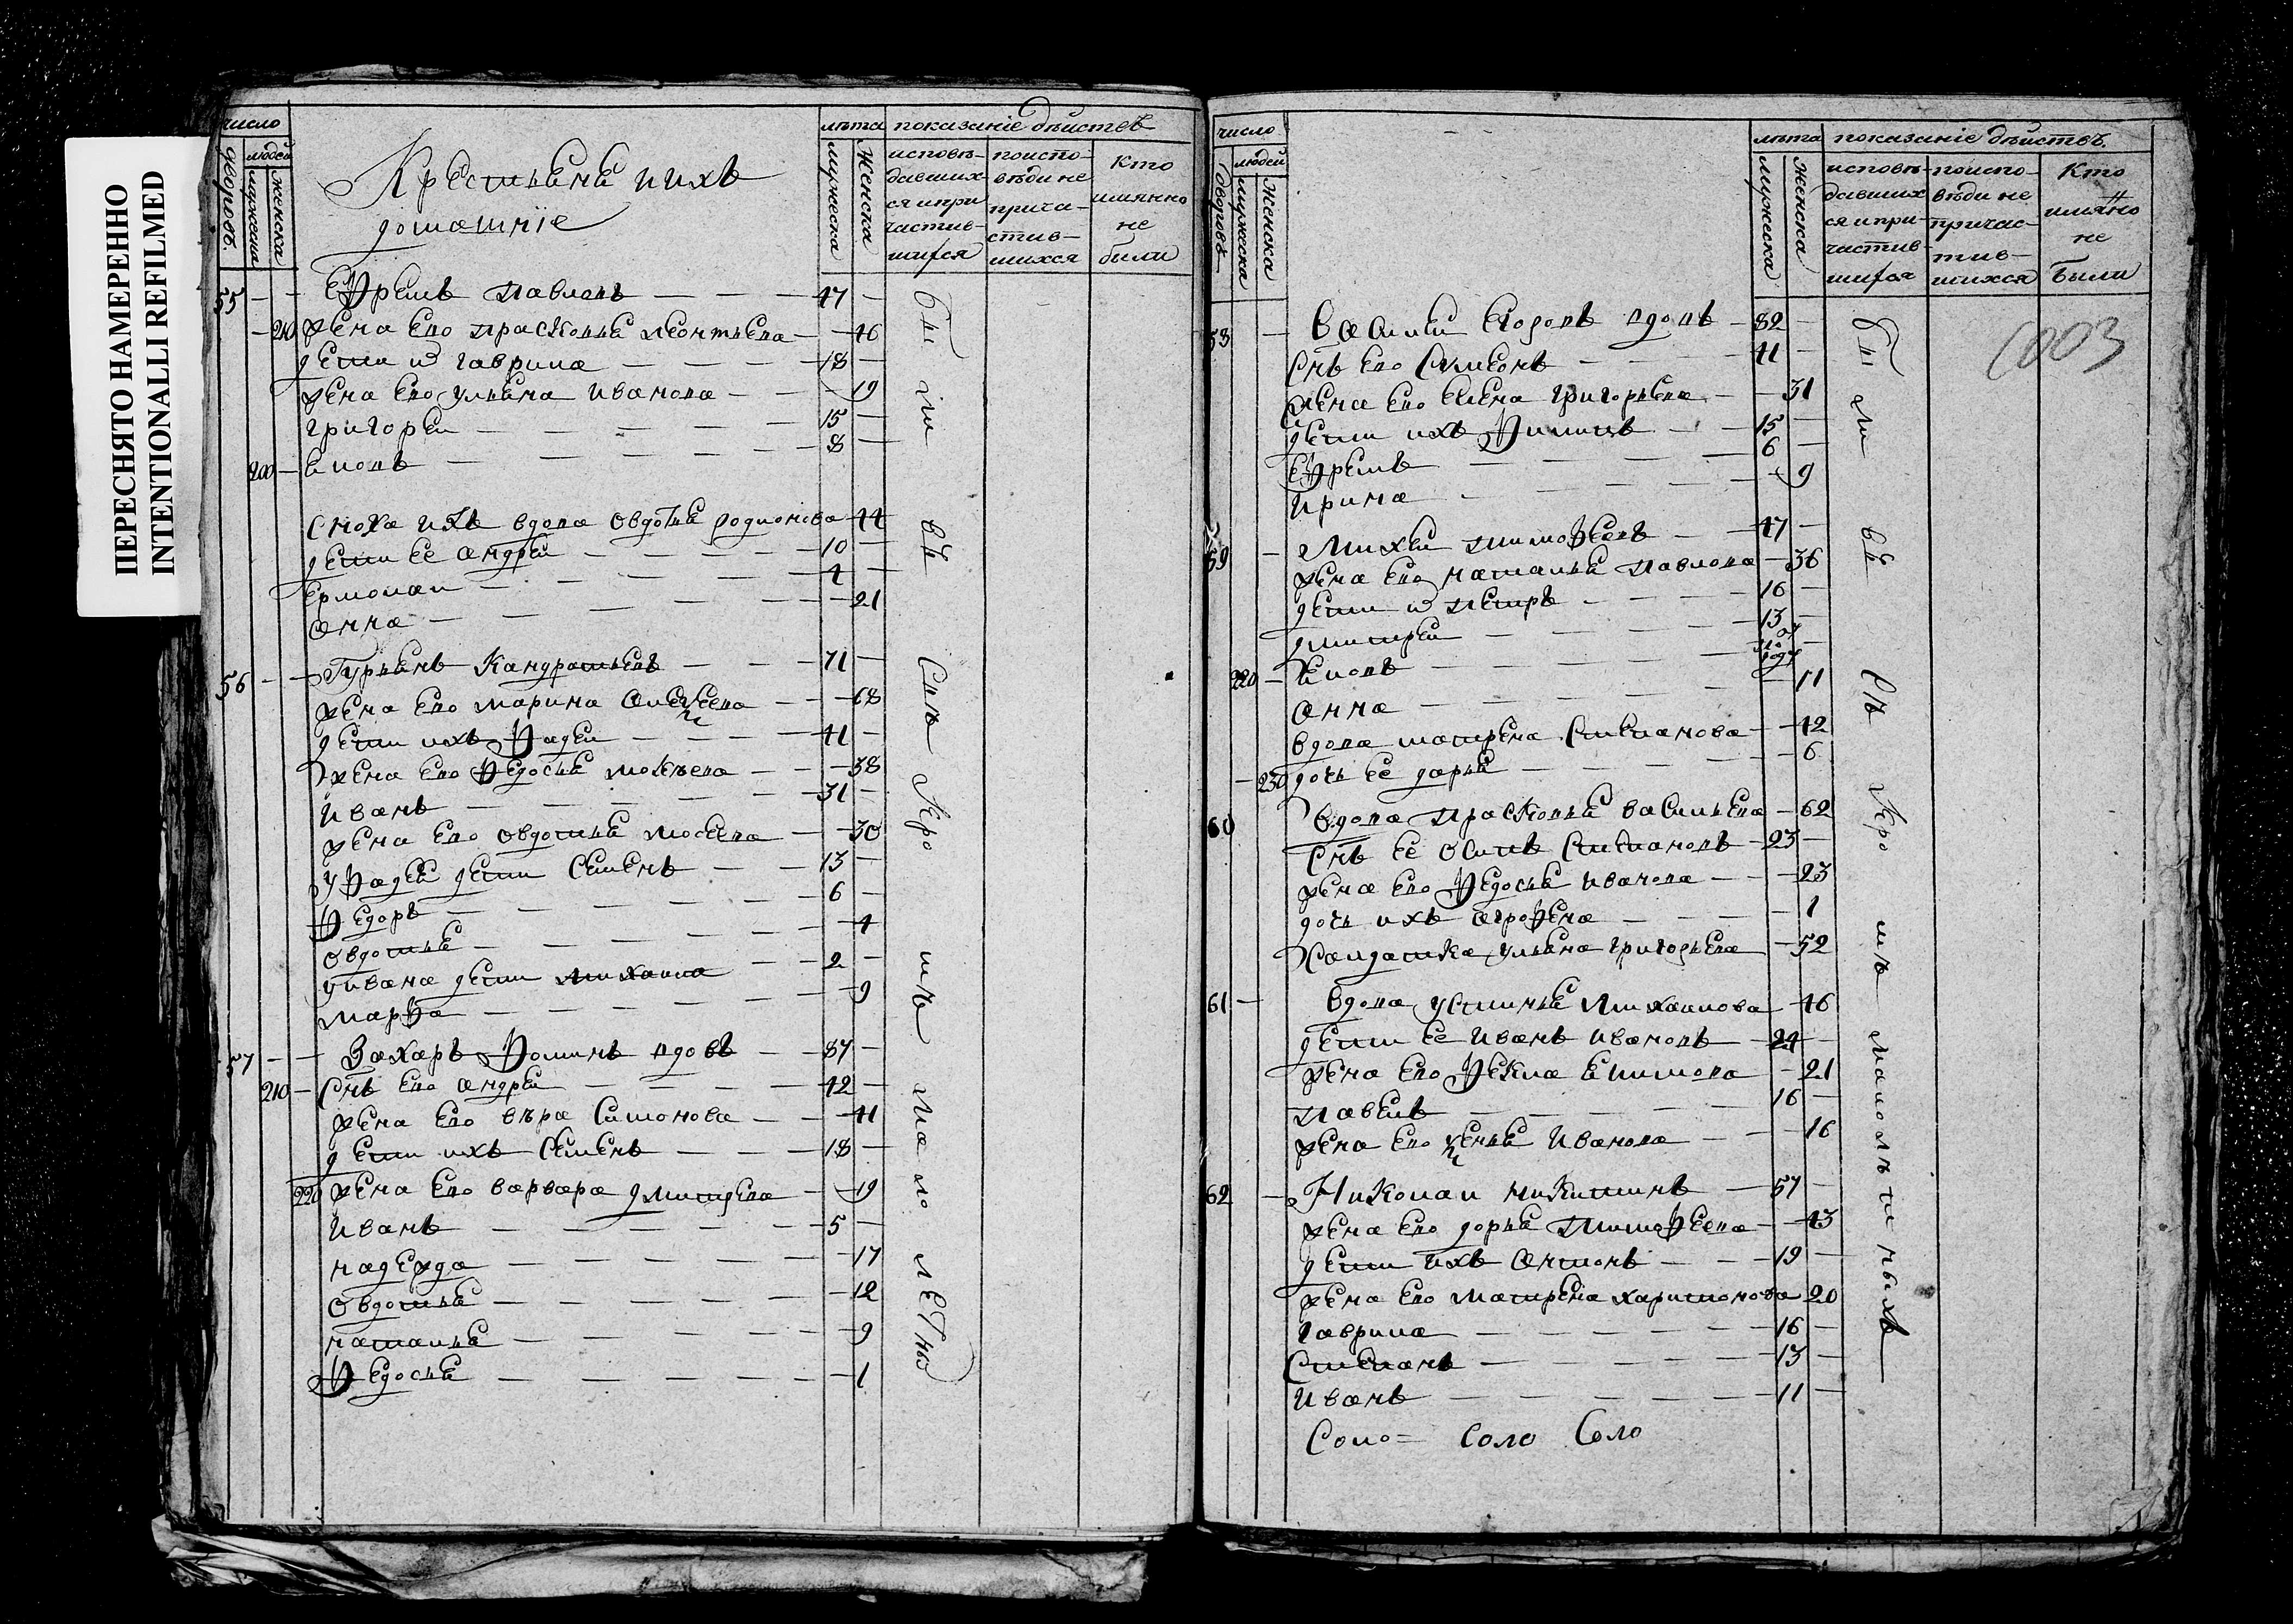 ПЕРЕСНЯТО НАМЕРЕННО
INTENTIONALLI REFILMED
число
дворовъ.
людей
мужеска
женска
Крестьяня и ихъ
домашніе
лѣта
мужеска
женска
показаніе дѣиствъ
исповѣ-
давших-
ся и при
частив-
шихся
поиспо-
вѣди не
прича-
стив-
шихся
Кто
имянно
не
были
55 Ефремъ павловъ 47
210 жена его прасковья леонтьева 46
дети ѿ гаврила 18
жена его ульяна иванова 19
григореи 15
200 Емовъ 8
сноха ихъ вдова овдотья родионова 44
дети ее андреи 10
Ермолаи 4
анна 21
56 Гурьянъ Кандратьевъ 71
жена его марина алексеева 68
дети ихъ Фадеи 41
жена его Федосья мокеева 38
иванъ 31
жена его овдотья мосеева 30
у Фадея дети семенъ 13
Федоръ 6
овдотья 4
у ивана дети михаила 2
марфа 9
57 Захаръ Фоминъ вдовъ 87
210 снъ его андреи 42
жена его вѣра Ситонова 41
дети ихъ семенъ 18
220 жена его варвара дмитрева 19
иванъ 5
надежда 17
овдотья 12
наталья 9
Федосья 1
бы ли въ Сля Кро мѣ мало лет
число
дворовъ
людей
мужеска
женска
лѣта
мужеска
женска
показаніе дѣиствъ.
исповѣ-
давших
ся и при-
частив-
шихся
поиспо-
вѣди не
причас-
тив-
шихся
Кто
имянно
не
Были
1003
58 Василеи Егоровъ вдовъ 82
снъ его Сумеонъ 41
жена его елена григорьева 31
дети ихъ Филипъ 15
Ефремъ 6
ирина 9
59 Михеи тимофеевъ 47
жена его наталья павлова 36
дети ѿ петръ 16
дмитреи 13
220 Емовъ
анна 11
вдова матрена степанова 42
230 дочь ее дарья 6
60 Вдова прасковья васильева 62
снъ ее осипъ степановъ 23
жена его Федосья иванова 23
дочь ихъ агрофена 1
Салдатка ульяна григорьева 52
61 Вдова устинья Михаилова 46
дети ее иванъ ивановъ 24
жена его Фекла Екимова 21
павелъ 16
жена его ксенья иванова 16
62 Николаи никитинъ 57
жена его дорья тимофеева 43
дети ихъ антонъ 19
жена его матрена харитонова 20
гаврила 16
степанъ 13
иванъ 11
Соло= Соло Соло
бы ли въ Сѣ Кро мѣ малолѣтныхъ